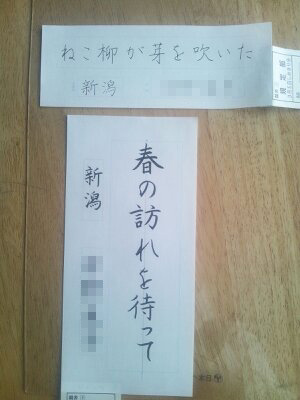 ねこ柳が芽を吹いた
新潟
春の訪れを待って
新潟